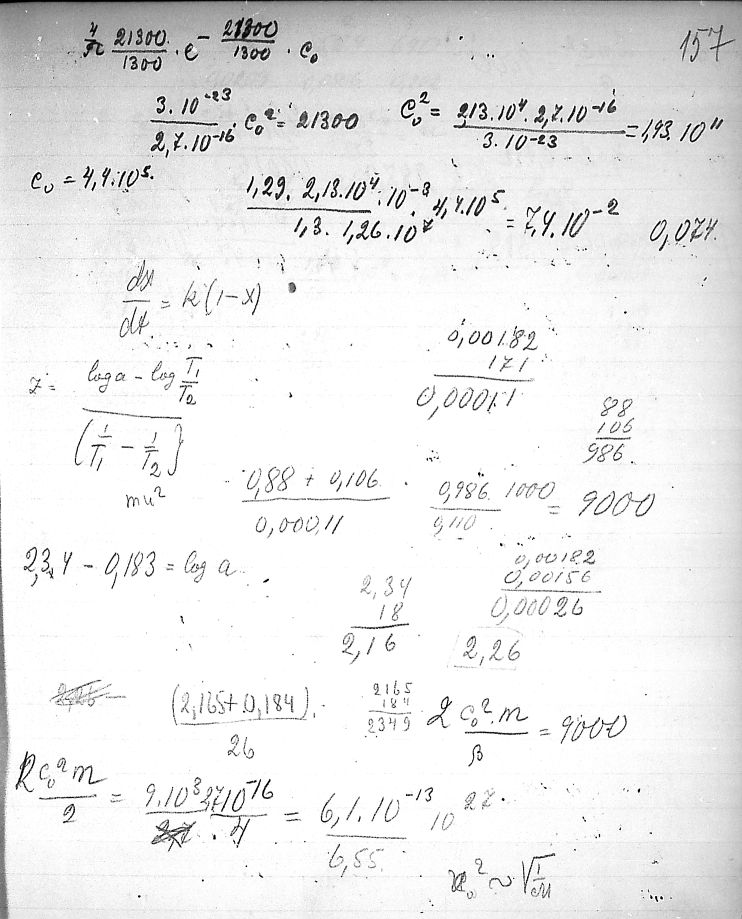 157
4/π 21300/1300 · e^(- 21300/1300) · c₀
3·10⁻²³ / 2,7·10⁻¹⁶ · c₀² = 21300
c₀² = 2,13·10⁴ · 2,7·10⁻¹⁶ / 3·10⁻²³ = 1,93·10¹¹
c₀ = 4,4·10⁵.
1,29 · 2,13·10⁴ · 10⁻³ · 4,4·10⁵ / 1,3 · 1,26·10⁷ = 7,4·10⁻² 0,074.
dx/dt = k(1-x)
0,00182
171
0,00011
z = log a - log T₁/T₂ / (1/T₁ - 1/T₂)
mu²
88
106
986.
0,88 + 0,106 / 0,00011
0,986 · 1000 / 0,110 = 9000
2,34 - 0,183 = log a
2,34
18
2,16
0,00182
0,00156
0,00026
2,26
2,26 -
(2,165 + 0,184) / 26
2165
184
2349
2 c₀² · m / β = 9000
R c₀² m / 2 = 9·10³ 2,7·10⁻¹⁶ / 4 = 6,1·10⁻¹³ / 6,55 10²⁷
~ √(1/M)